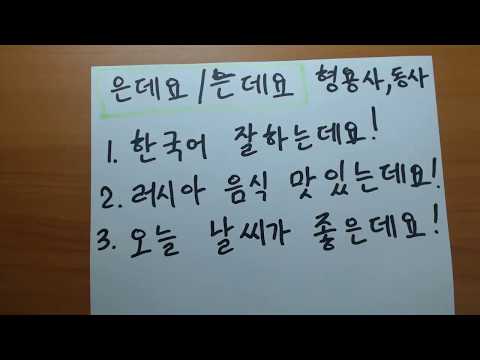 은데요/는데요 형용사,동사
1. 한국어 잘하는데요!
2. 러시아 음식 맛있는데요!
3. 오늘 날씨가 좋은데요!